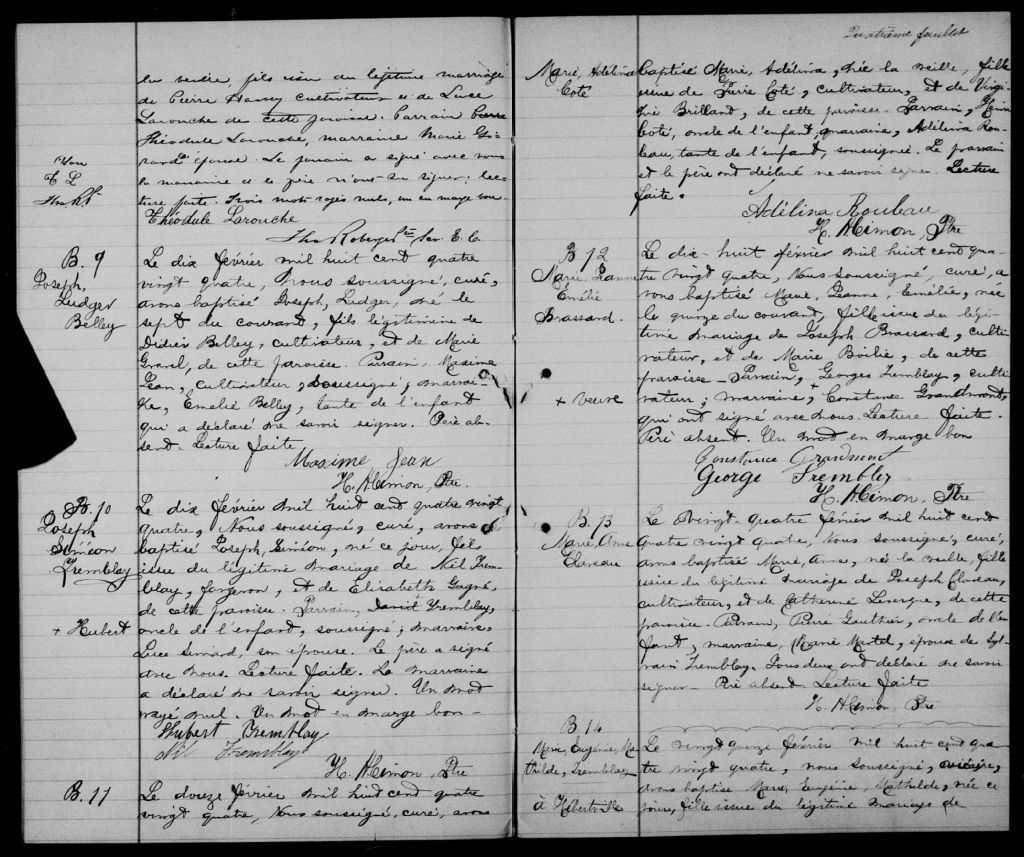 la veille, fils issu du légitime mariage
de Pierre Harvey cultivateur et de Luce
Larouche de cette paroisse. Parrain Pierre
Théodule Larouche, marraine Marie Gi-
rard épouse. Le parrain a signé avec nous
la marraine et le père n'ont su signer. Lec-
ture faite. Trois mots rayés nuls, un en marge bon.
Théodule Larouche
Ths Roberge ptre
B. 9
Joseph,
Ludger
Belley
Le dix février mil huit cent quatre
vingt quatre, Nous soussigné, curé,
avons baptisé Joseph, Ludger, né le
sept du courant, fils légitime de
Didier Belley, cultivateur, et de Marie
Gravel, de cette paroisse. Parrain, Maxime
Jean, cultivateur, soussigné; marrai-
ne, Emélie Belley, tante de l'enfant
qui a déclaré ne savoir signer. Père ab-
sent. Lecture faite
Maxime Jean
H. Ptre.
B. 10
Joseph
Siméon
Tremblay
+ Hubert
Le dix février mil huit cent quatre vingt
quatre, Nous soussigné, curé, avons
baptisé Joseph, Siméon, né ce jour, fils
issu du légitime mariage de Nil Trem-
blay, forgeron, et de Elisabeth Gagné,
de cette paroisse. Parrain, David Tremblay,
oncle de l'enfant, soussigné; marraine,
Luce Simard, son épouse. Le père a signé
avec nous. Lecture faite. La marraine
a déclaré ne savoir signer. Un mot
rayé nul. Un mot en marge bon -
Hubert Tremblay
Nil Tremblay
H. Ptre
B. 11
Le douze février mil huit cent quatre
vingt quatre, Nous soussigné, curé, avons
Quatrième feuillet
Marie, Adélina
Coté
baptisé Marie, Adélina, née la veille, fille
issue de Pierre Coté, cultivateur, et de Virgi-
nie Brilland, de cette paroisse. Parrain,
Coté, oncle de l'enfant, marraine, Adélina Rou-
leau, tante de l'enfant, soussignée. Le parrain
et le père ont déclaré ne savoir signer. Lecture
faite.
Adélina Rouleau
H. Ptre
B 12
Marie Jeanne
Emélie
Brassard.
+ veuve
Le dix-huit février mil huit cent qua-
tre vingt quatre, Nous soussigné, curé, a
vons baptisé Marie, Jeanne, Emélie, née
le quinze du courant, fille issue du légi-
time mariage de Joseph Brassard, culti-
vateur, et de Marie Boilie, de cette
paroisse - Parrain, Georges Tremblay, culti
vateur; marraine, + Constance Grandmont,
qui ont signé avec nous. Lecture faite.
Père absent. Un mot en marge bon
Constance Grandmont
George Tremblay
H. Ptre
B. 13
Marie Anne
Claveau
Le vingt-quatre février mil huit cent
quatre vingt quatre, Nous soussigné, curé,
avons baptisé Marie, Anne, née la veille, fille
issue du légitime mariage de Joseph Claveau,
cultivateur, et de Catherine Lavergne, de cette
paroisse. Parrain, Pierre Gauthier, oncle de l'en
fant, marraine, Marie Martel, épouse de Syl-
vain Tremblay. Tous deux ont déclaré ne savoir
signer - Père absent. Lecture faite
H. Ptre
B. 14
Marie Eugénie, Ma
thilde, Tremblay
à Hébertville
Le vingt quinze février mil huit cent qua
tre vingt quatre, nous soussigné, vicaire,
avons baptisé Marie, Eugénie, Mathilde, née ce
jour, fille issue du légitime mariage de